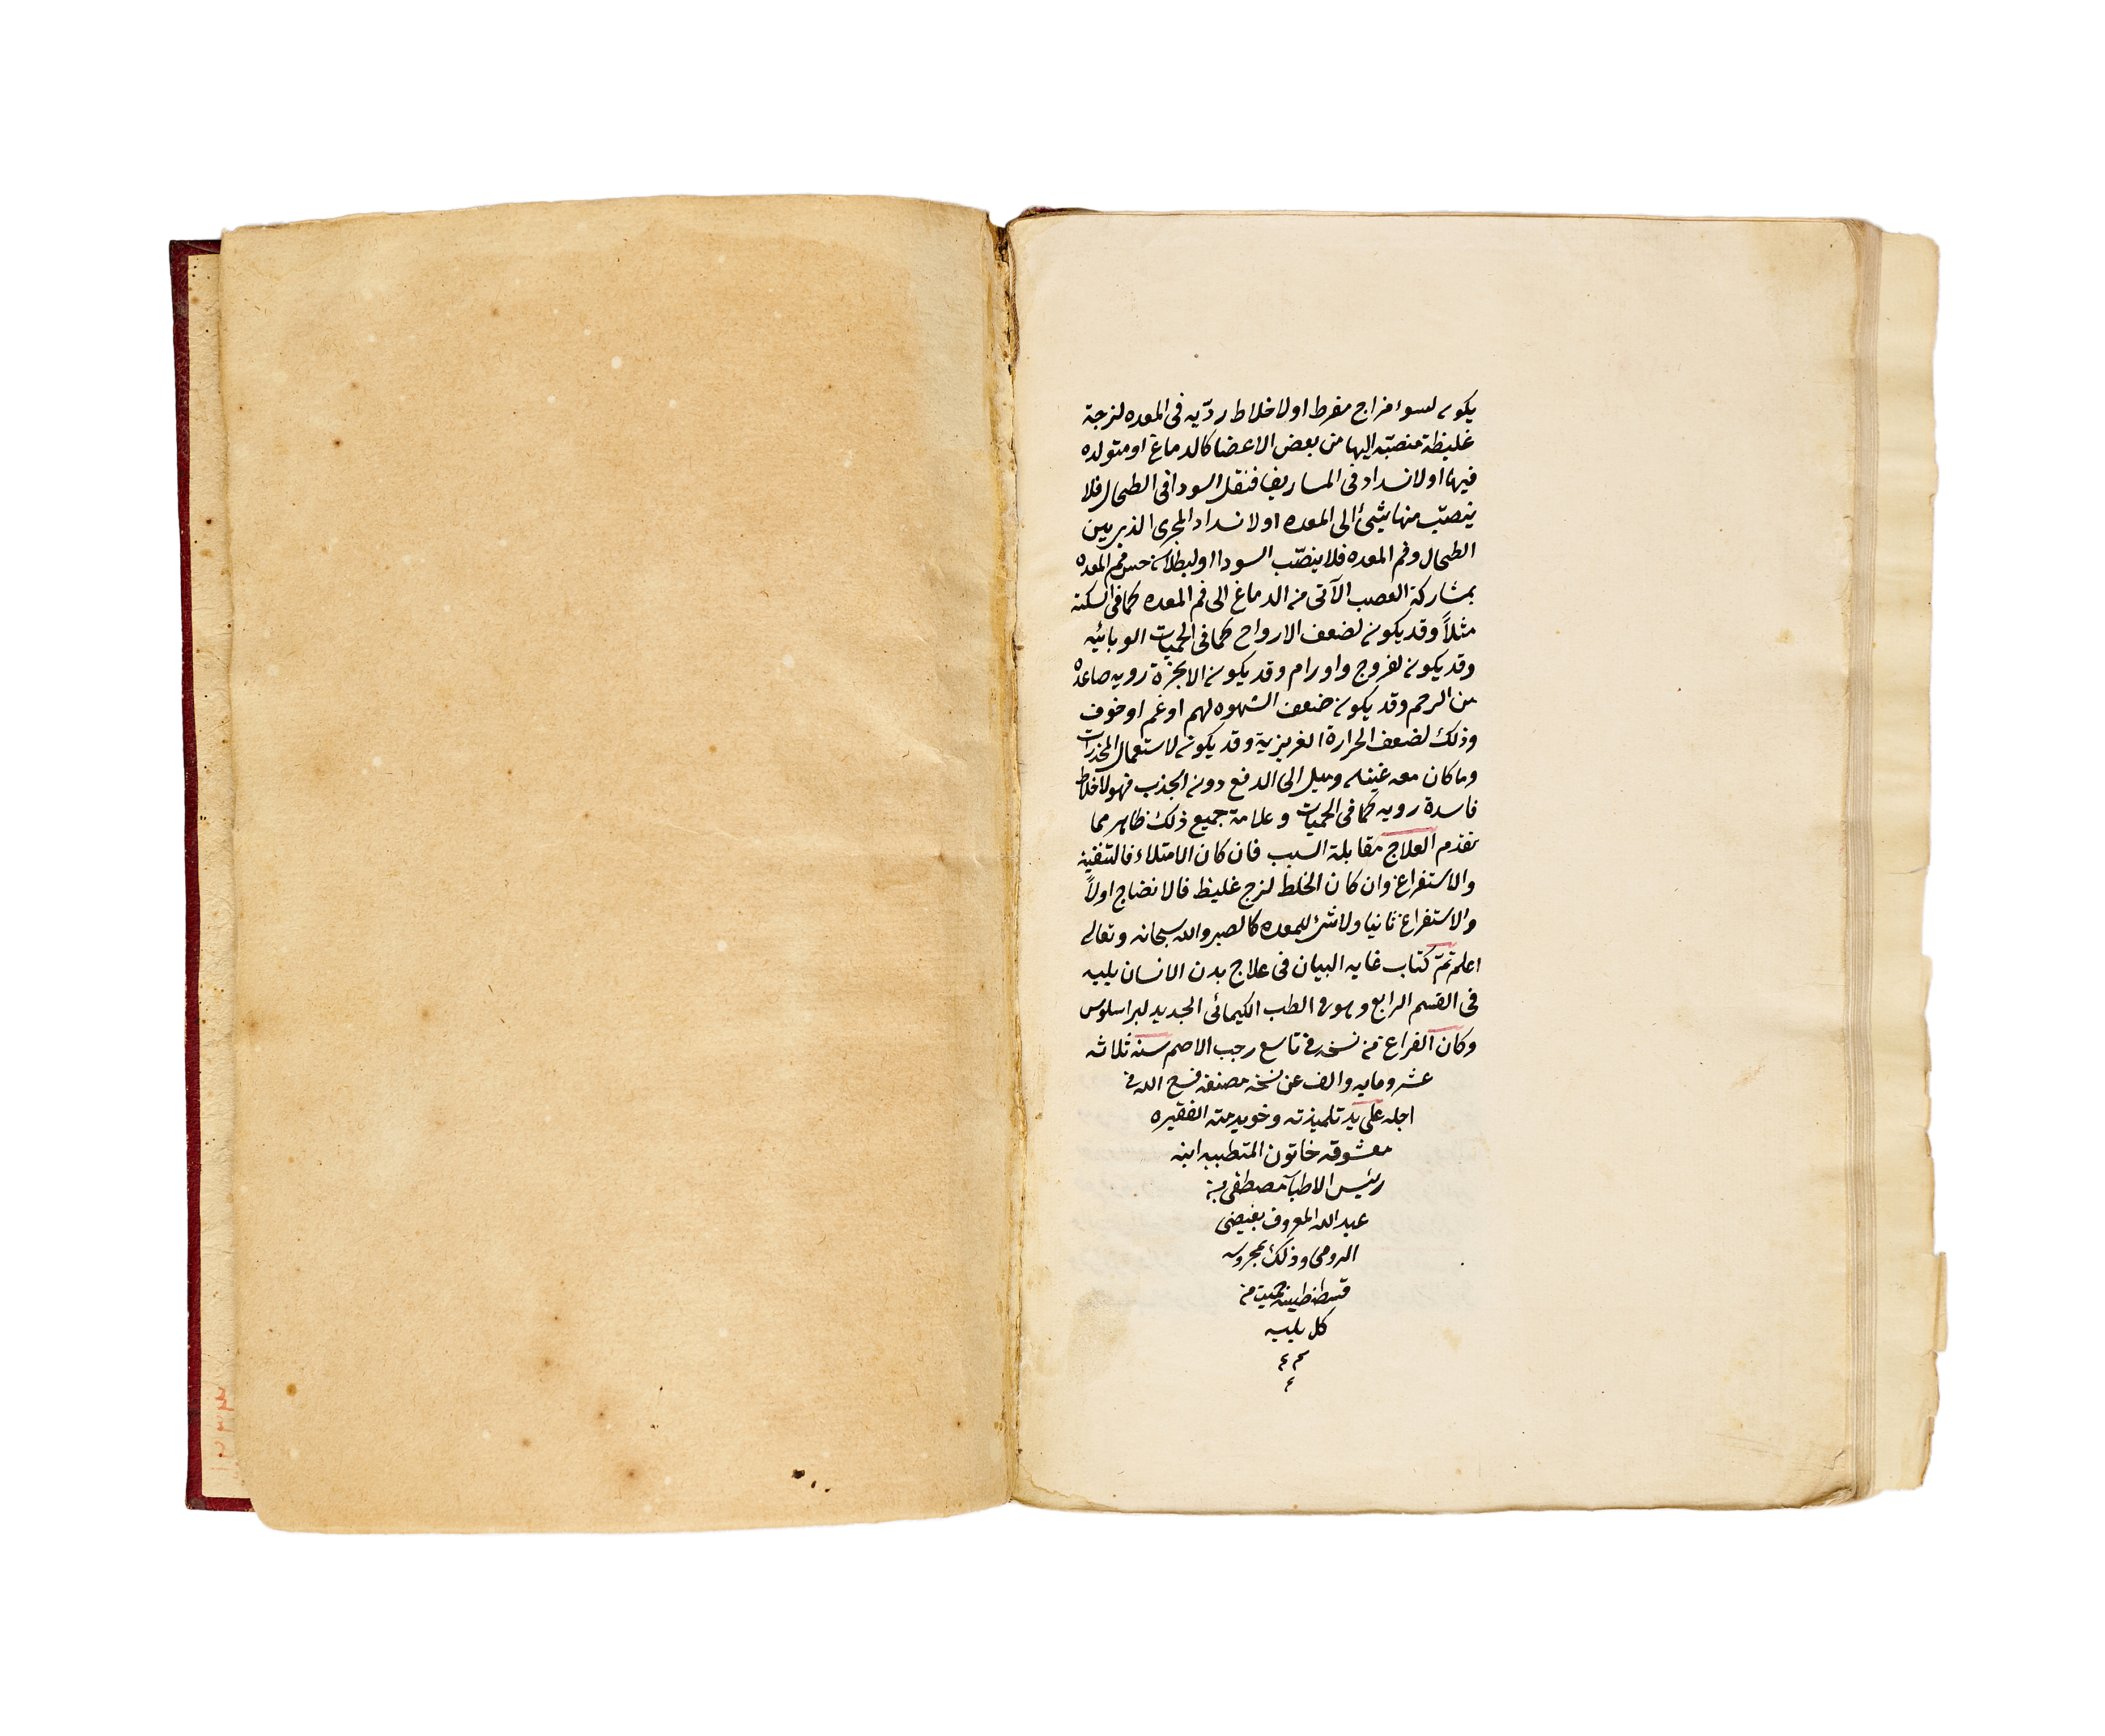 يكون لسوء مزاج مفرط او لاخلاط رديّه فى المعده لزجة
غليظة منصبّه اليها من بعض الاعضا كالدماغ او متولده
فيها او لانسداد فى الماساريقا فتقل السودا فى الطحال فلا
ينصبّ منها شئ الى المعده او لانسداد المجرى الذى بين
الطحال وفم المعده فلا ينصّب السودا او لبطلان حس فم المعده
بمشاركة العصب الآتى من الدماغ الى فم المعده كما فى السكته
مثلاً وقد يكون لضعف الارواح كما فى الحميات الوبائيه
وقد يكون لقروح واورام وقد يكون لابخرة رديه صاعده
من الرحم وقد يكون ضعف الشهوه لهم او غم او خوف
وذلك لضعف الحرارة الغريزية وقد يكون لاستعمال المخدرات
وما كان معه غثيان وميل الى الدفع دون الجذب فهو لاخلاط
فاسدة رديه كما فى الحميات وعلامة جميع ذلك ظاهر مما
تقدم العلاج مقابلة السبب فان كان الامتلاء فالتنقيه
والاستفراغ وان كان الخلط لزج غليظ فالانضاج اولاً
والاستفراغ ثانيا ولا شئ للمعده كالصبر والله سبحانه وتعالى
اعلم تمّ كتاب غايه البيان فى علاج بدن الانسان يليه
فى القسم الرابع وهو فى الطب الكيمائى الجديد لبراسلوس
وكان الفراغ من نسخه فى تاسع رجب الاصم سنة ثلاثه
عشر ومايه والف عن نسخه مصنفه فسح الله فى
اجله على يد تلميذته وخويدمته الفقيره
معشوقه خاتون المتطببه ابنه
رئيس الاطبآ مصطفى بن
عبد الله المعروف بفيضى
الرومى وذلك بمحروسه
قسطنطينيه حميت من
كل بليه